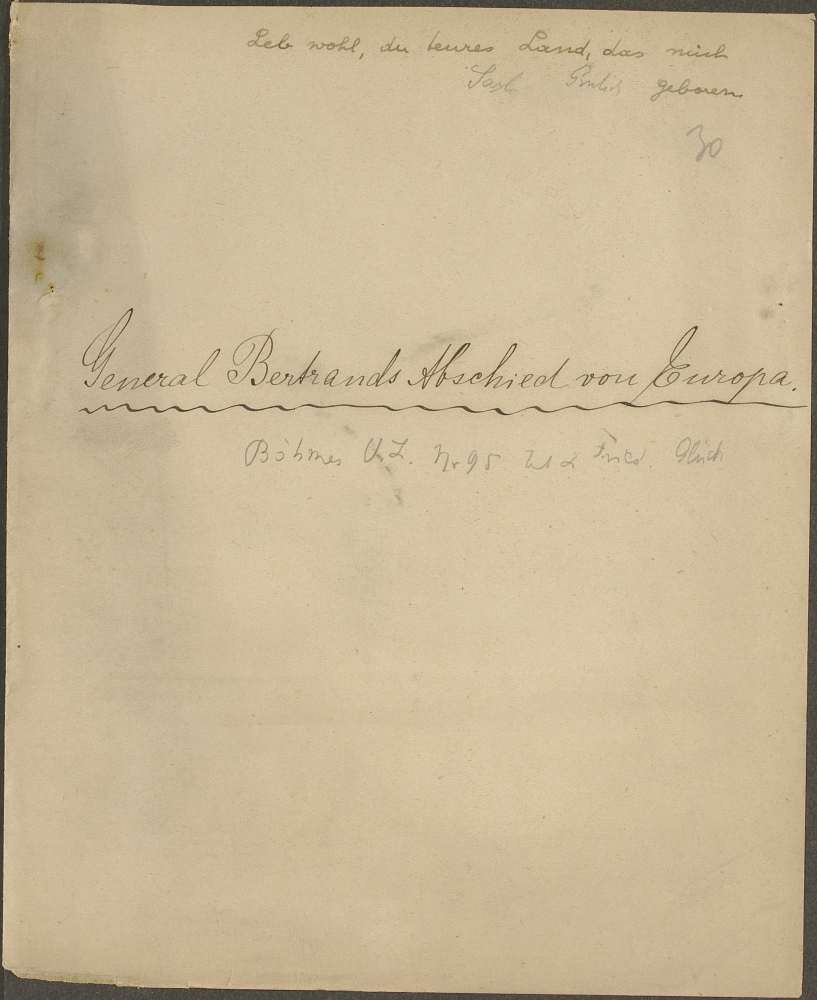 Leb wohl, du teures Land, das mich
geboren
30
General Bertrands Abschied von Europa.
Böhmes V. L. Nr 95 Fried. Glück